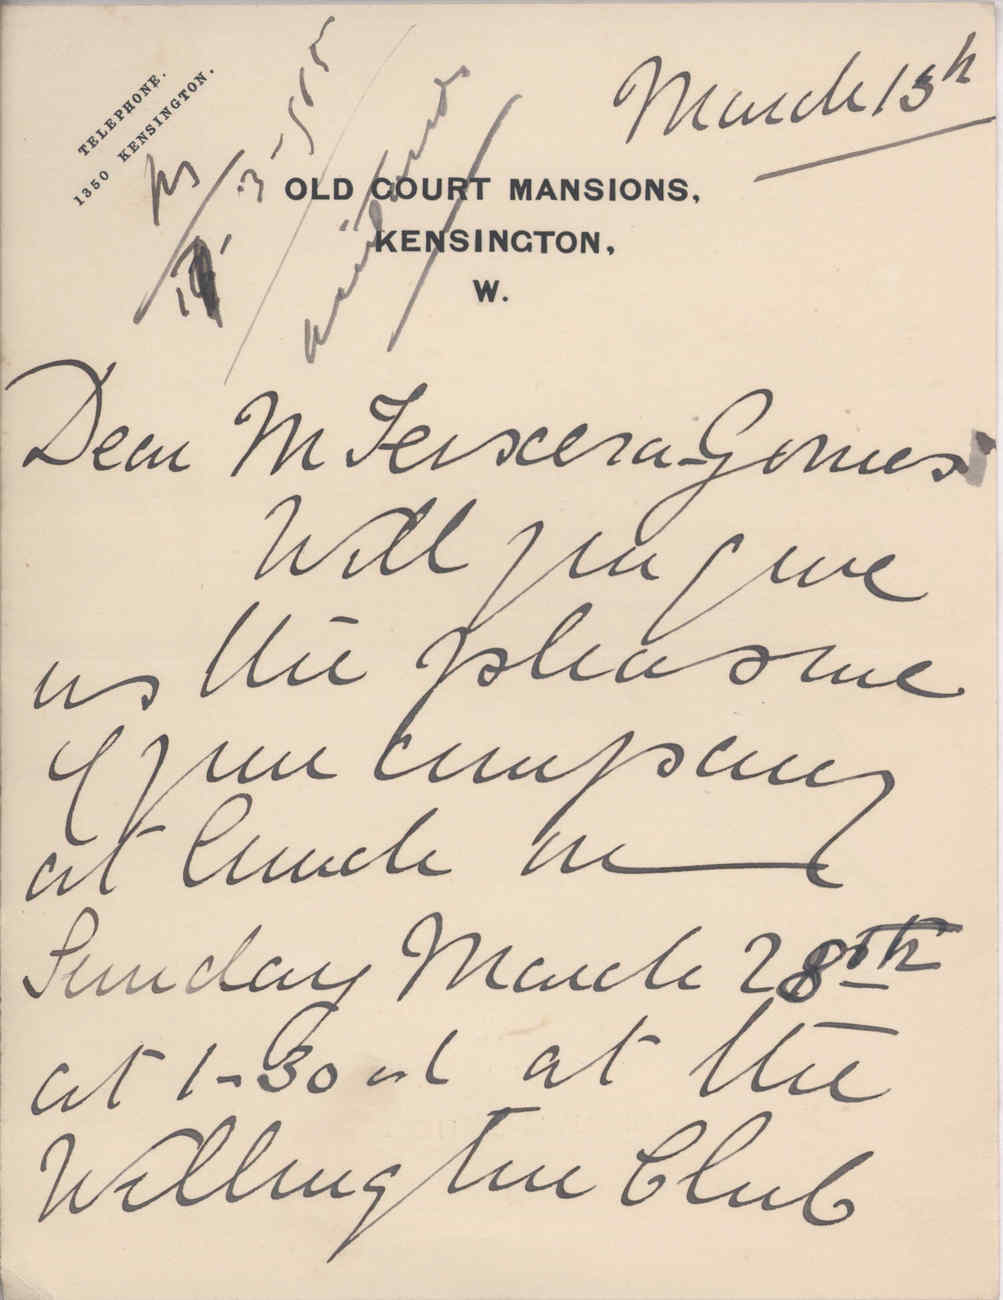 TELEPHONE.
1350 KENSINGTON.
March 13th
OLD COURT MANSIONS,
KENSINGTON,
W.
Dear M Teixera-Gomes
Will you give
us the pleasure
of your company
at lunch on
Sunday March 28th
at 1-30 at the
Wellington Club